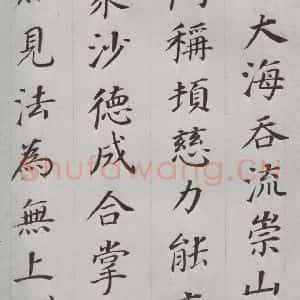 大海吞流崇山
稱揁慈力能
沙德成合掌
見法為無上
shufawang.cn